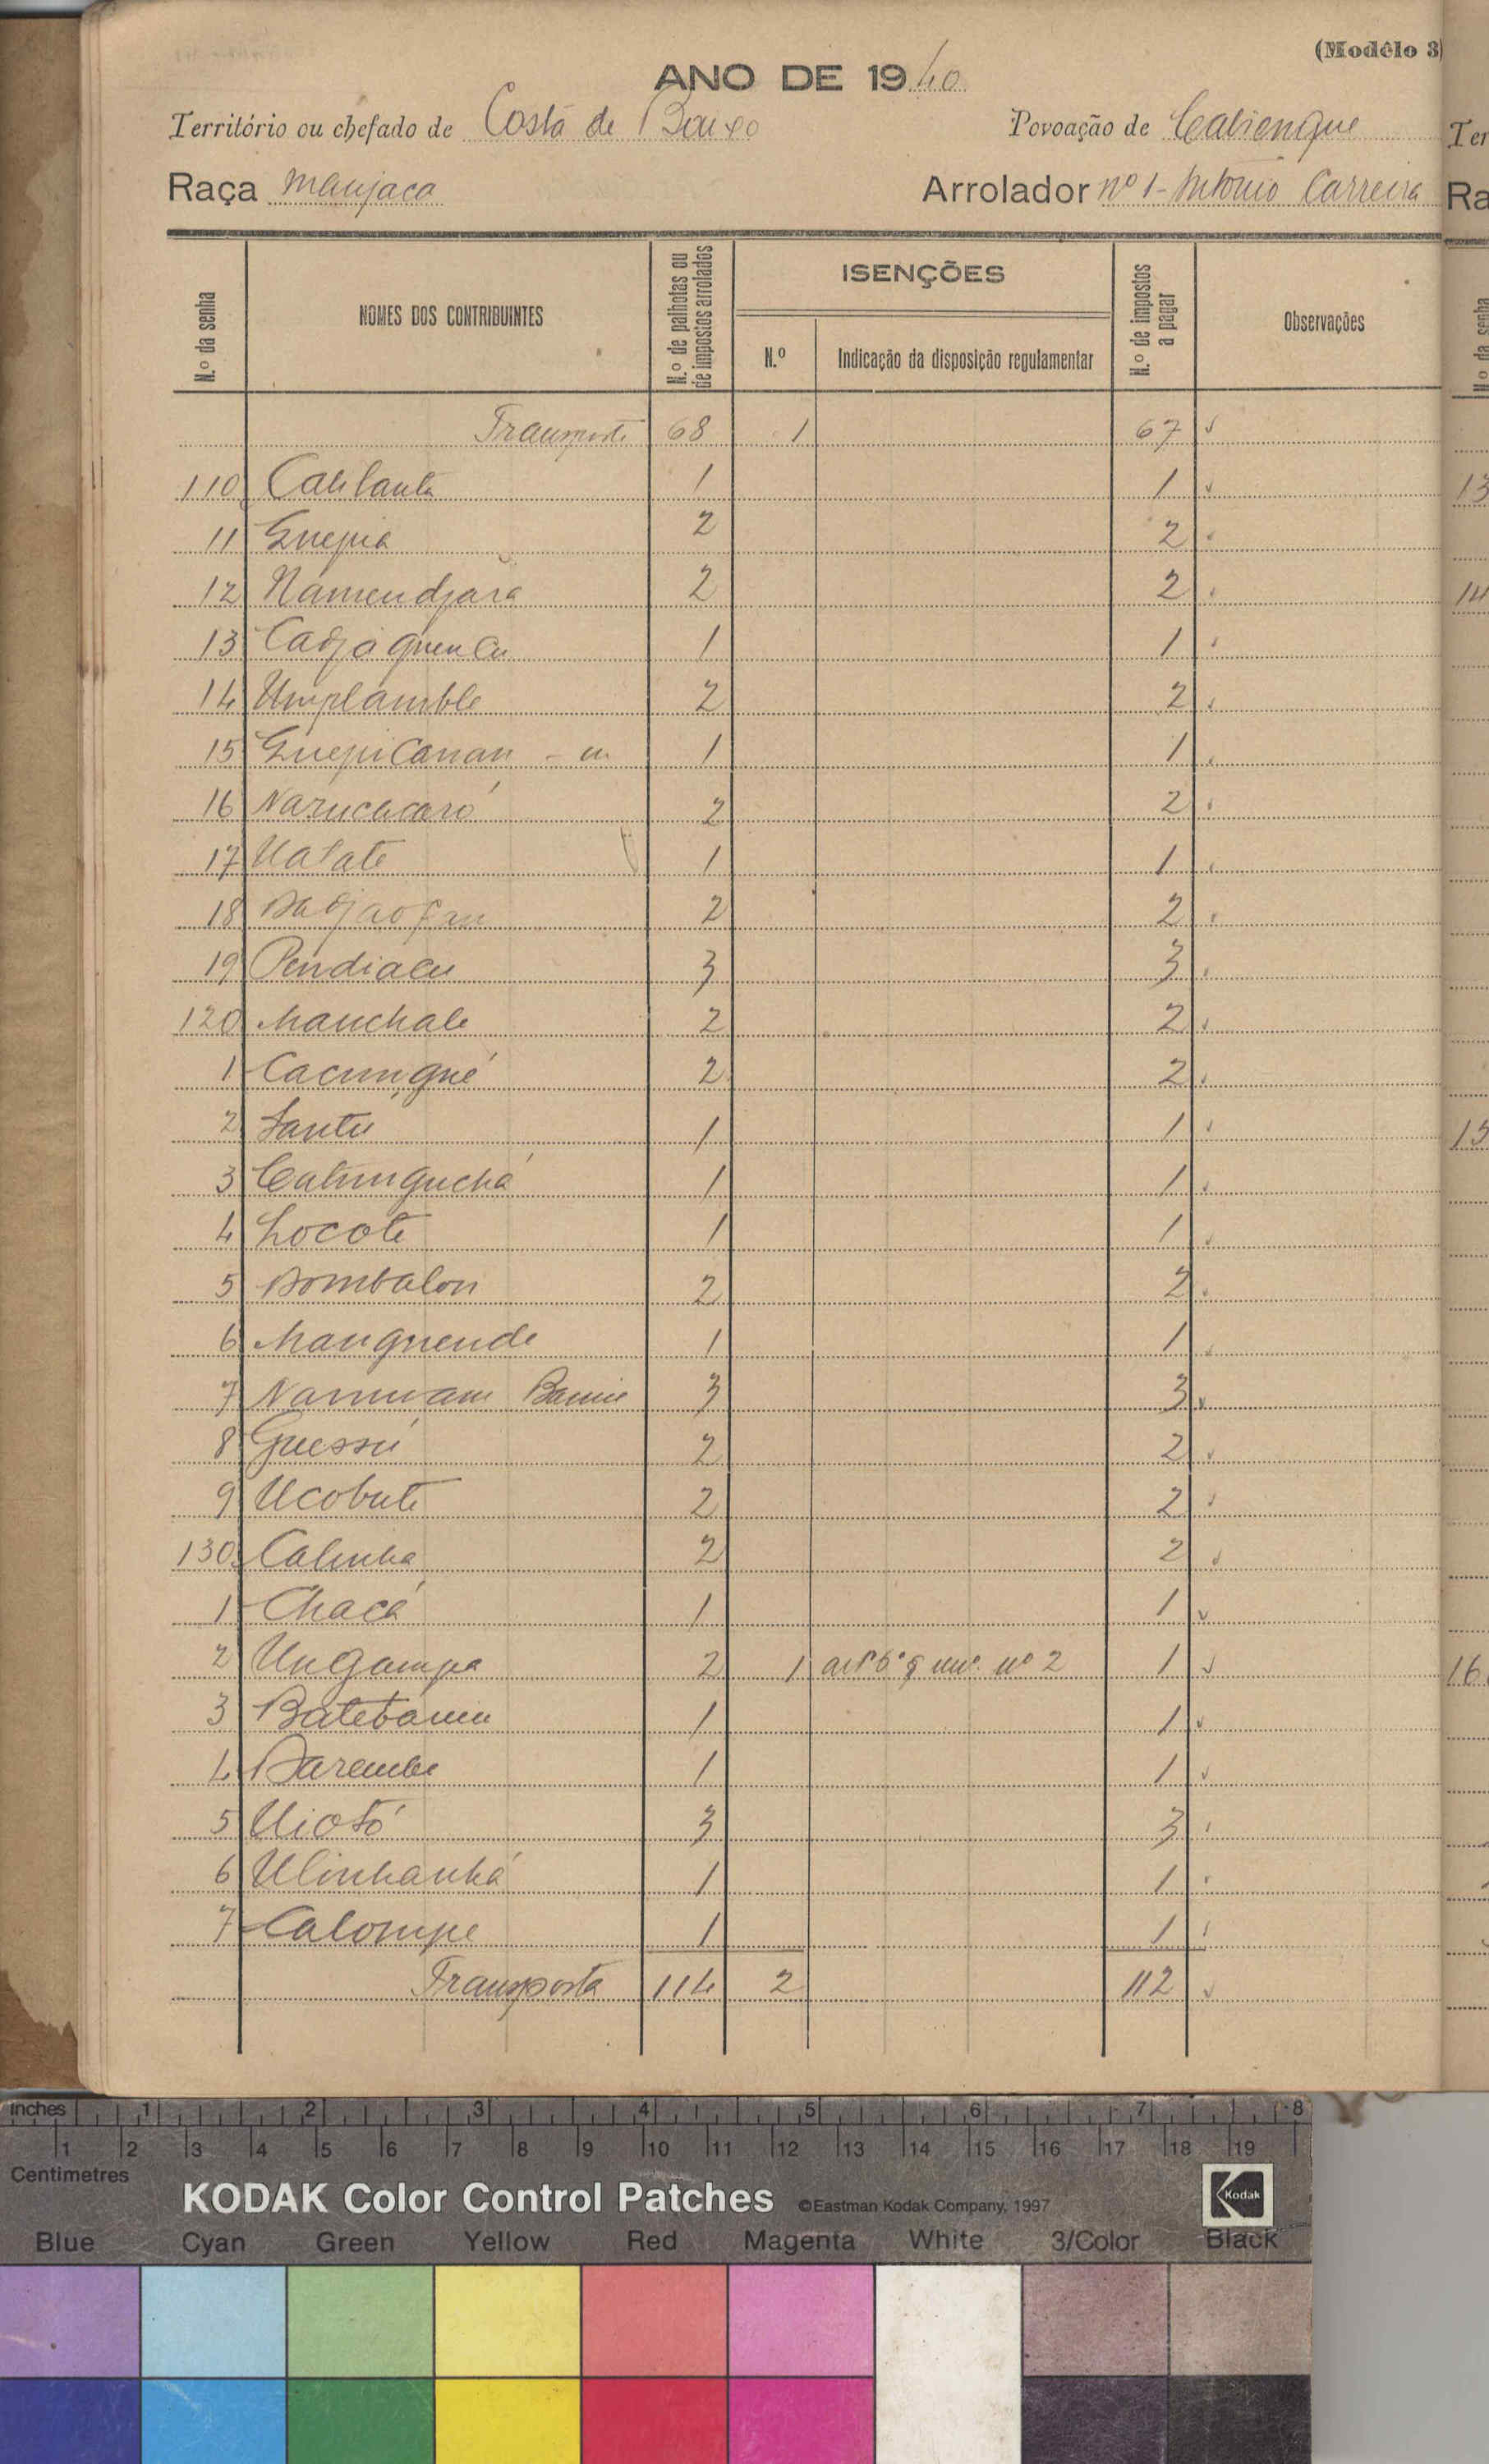 (Modêlo 3)
ANO DE 1940
Território ou chefado de Costa de Baixo Povoação de Calienque
Raça Manjaca Arrolador nº 1 - António Carreira
N.º da senha NOMES DOS CONTRIBUINTES N.º de palhotas ou de impostos arrolados ISENÇÕES N.º Indicação da disposição regulamentar N.º de impostos a pagar Observações
Transporte 68 1 67
110 1 1
11 Guepia 2 2
12 Namendjara 2 2
13 Cadjaquencu 1 1
14 Umplamble 2 2
15 Guepicanan 1 1
16 Nazucacaró 2 2
17 Uatate 1 1
18 2 2
19 Pendiacu 3 3
120 Manchale 2 2
1 Cacungué 2 2
2 Santu 1 1
3 Catunguchá 1 1
4 Locote 1 1
5 Dombalon 2 2
6 Manguende 1 1
7 3 3
8 Guessú 2 2
9 Ucobute 2 2
130 Calinha 2 2
1 Chacá 1 1
2 Ungampa 2 1 artº 6º § unº. nº 2 1
3 1 1
4 Darembe 1 1
5 Uiotó 3 3
6 Ulinhanhá 1 1
7 Calompe 1 1
Transporta 114 2 112
inches 1 2 3 4 5 6 7 8
1 2 3 4 5 6 7 8 9 10 11 12 13 14 15 16 17 18 19
Centimetres
KODAK Color Control Patches ©Eastman Kodak Company, 1997 Kodak
Blue Cyan Green Yellow Red Magenta White 3/Color Black